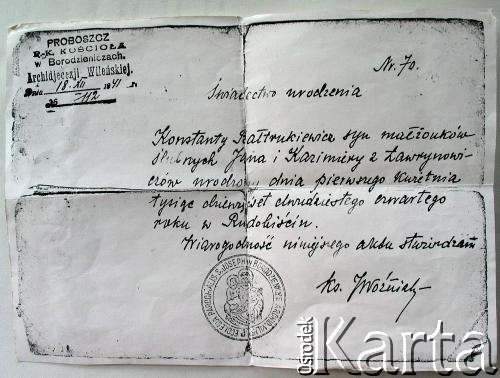 PROBOSZCZ
R.-K. KOŚCIOŁA
w Borodzieniczach.
Archidjecezji Wileńskiej.
Dnia 18. XII 1941 r.
№ 112
Nr. 70.
Świadectwo urodzenia
Konstanty Bałtrukiewicz syn małżonków
ślubnych Jana i Kazimiery z Ławrynowi-
czów urodzony dnia pierwszego kwietnia
tysiąc dziewięćset dwudziestego czwartego
roku w
Wiarogodność niniejszego aktu stwierdzam
ks. Woźniak
Ośrodek
Karta